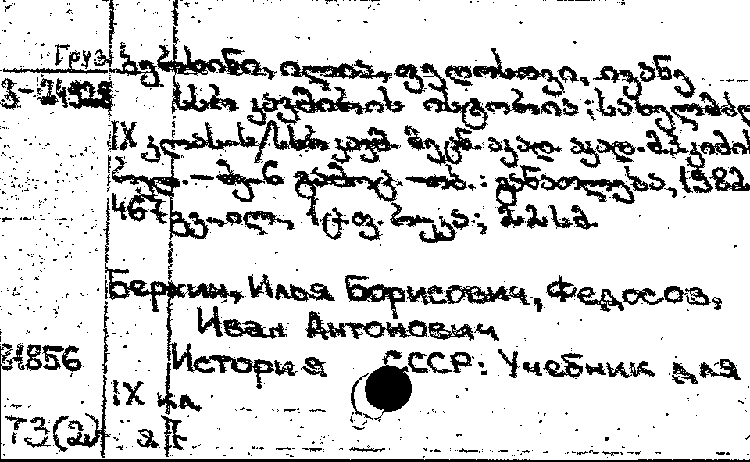 Груз
ბერხინი, ილია, ფედოსოვი, ივანე
3-24928
სსრ კავშირის ისტორია: სახელმძღ
IX კლასის/სსრ კავშ. მეცნ. აკად. აკად. მ.პ. კიმის
რედ. – მე-6 გამოც. – თბ.: განათლება, 1982
467 გვ., ილ., 1 ც. ფ. რუკა; 22 სმ.
Беркин, Илья Борисович, Федосов,
Иван Антонович
81856
История СССР: Учебник для
IX кл.
Т3(2)
я